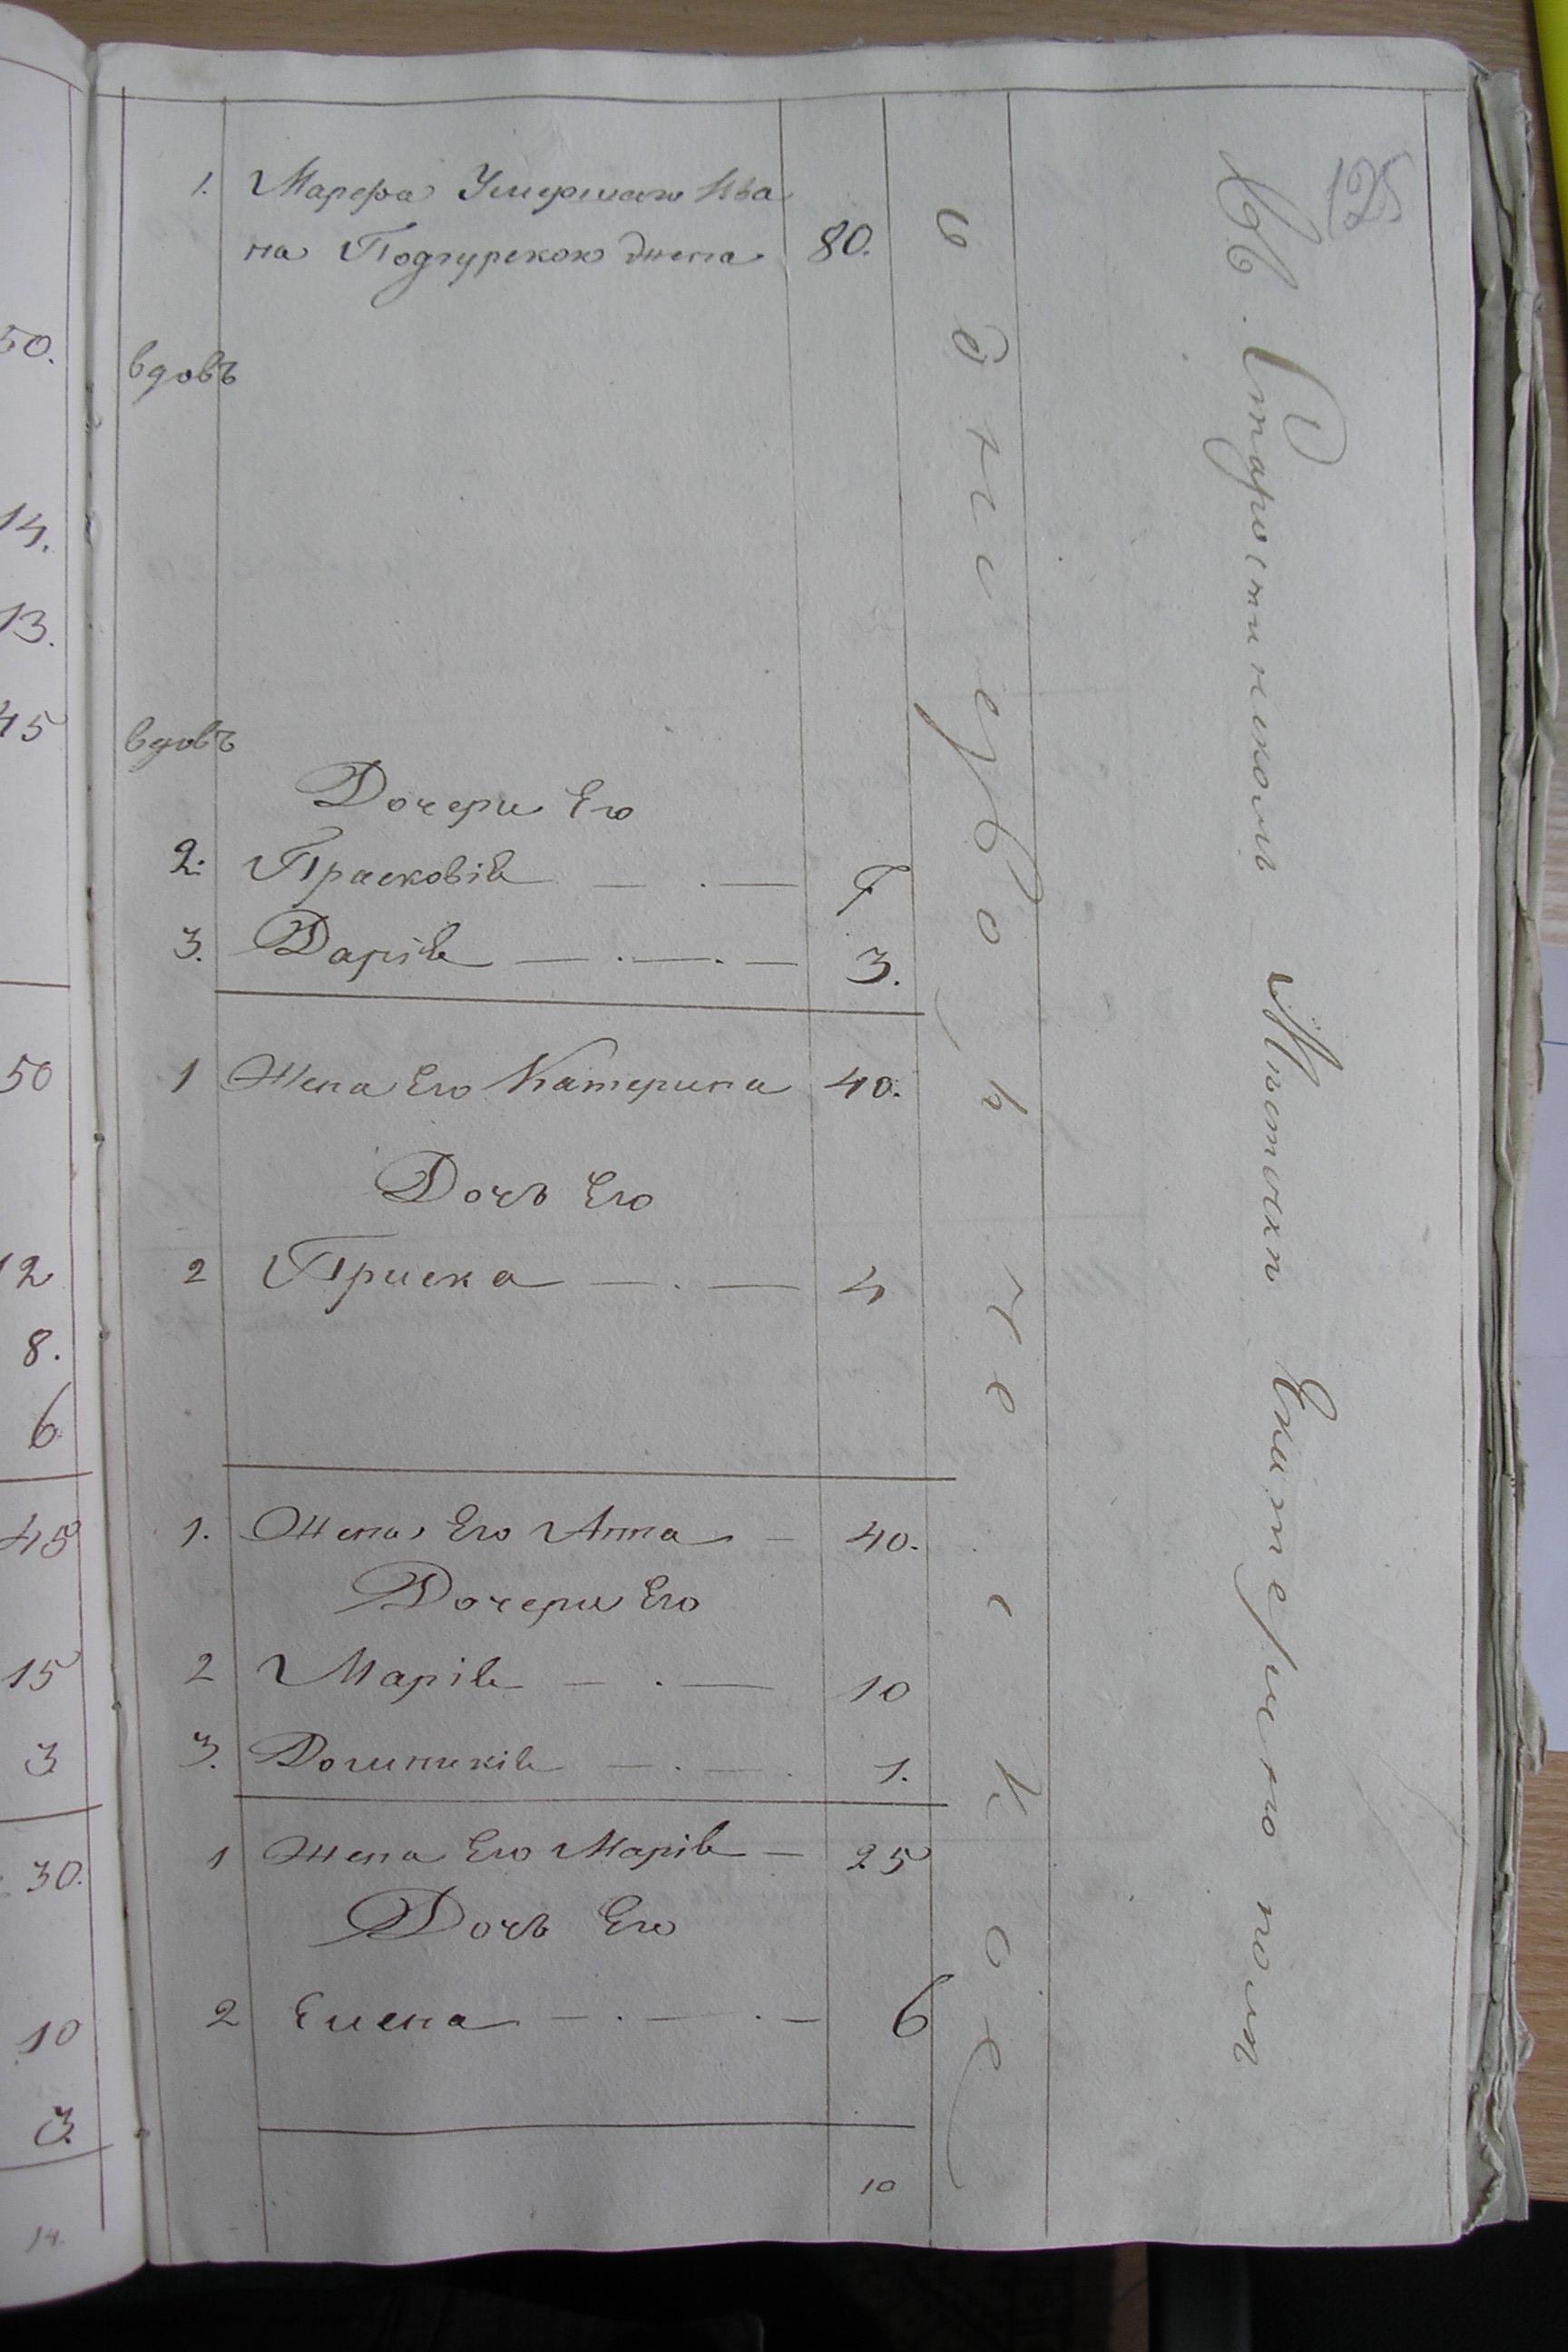 125
1. Марѳа Умершаго Ива
на Подгурскою жена 80.
вдовъ
вдовъ
Дочери Его
2. Прасковія 7.
3. Дарія 3.
1 Жена Его Катерина 40.
Дочь Его
2 Приска 4
1. Жена Его Анна 40.
Дочери Его
2 Марія 10
3. Доминикія 1.
1 Жена Его Марія 25
Дочь Его
2 Елена 6
10
однодворческое
Въ Старостинскомъ Мѣстечкѣ
50.
14.
13.
45
50
12
8.
6
45
15
3
30.
10
3.
14.